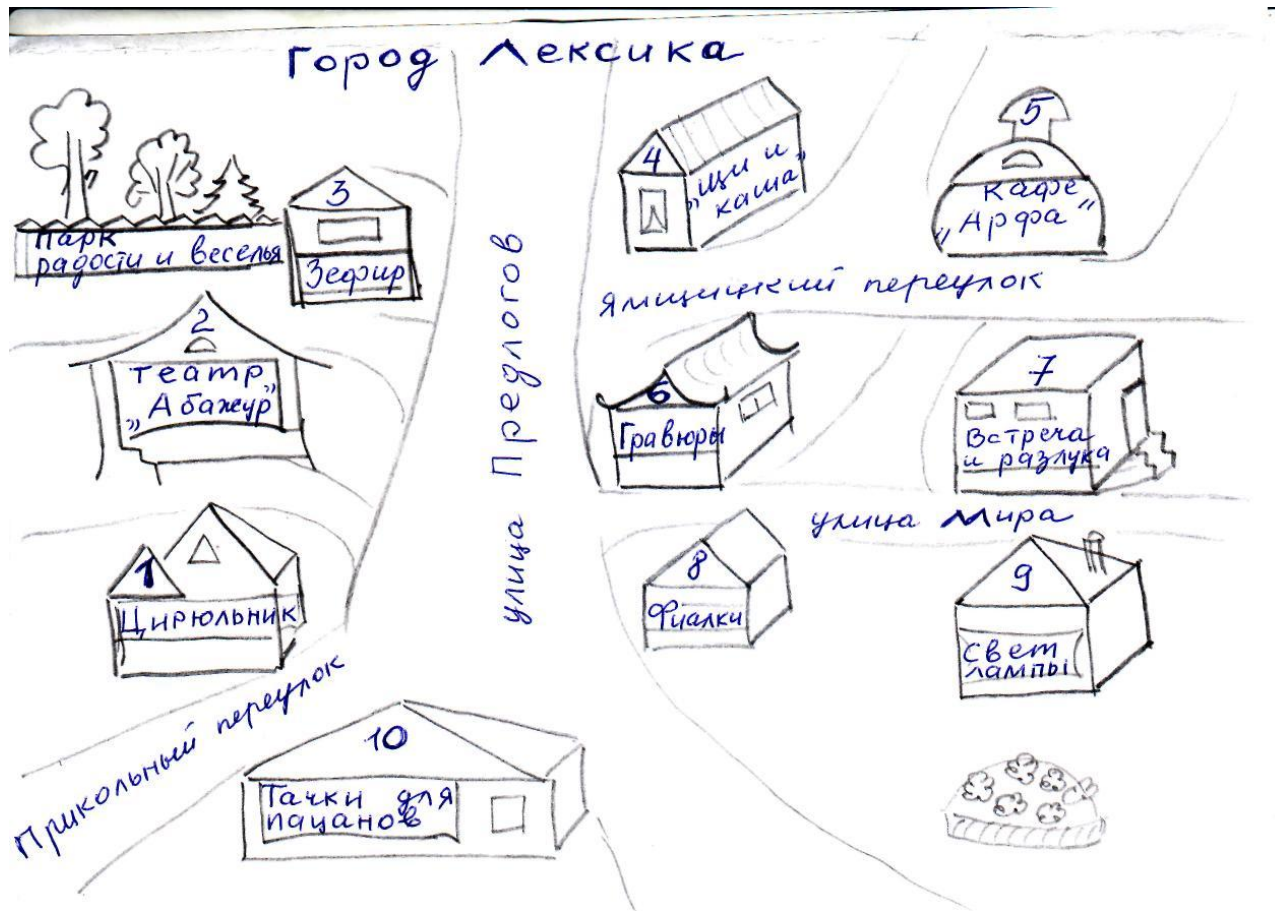 Город Лексика
3
Парк
радости и веселья
Зефир
2
театр
„Абажур"
1
Цирюльник
Прикольный переулок
10
Тачки для
пацанов
улица Предлогов
4
„Щи и
каша"
5
кафе
„Арфа"
Ямщицкий переулок
6
Гравюры
7
Встреча
и разлука
улица Мира
8
Фиалки
9
Свет
лампы